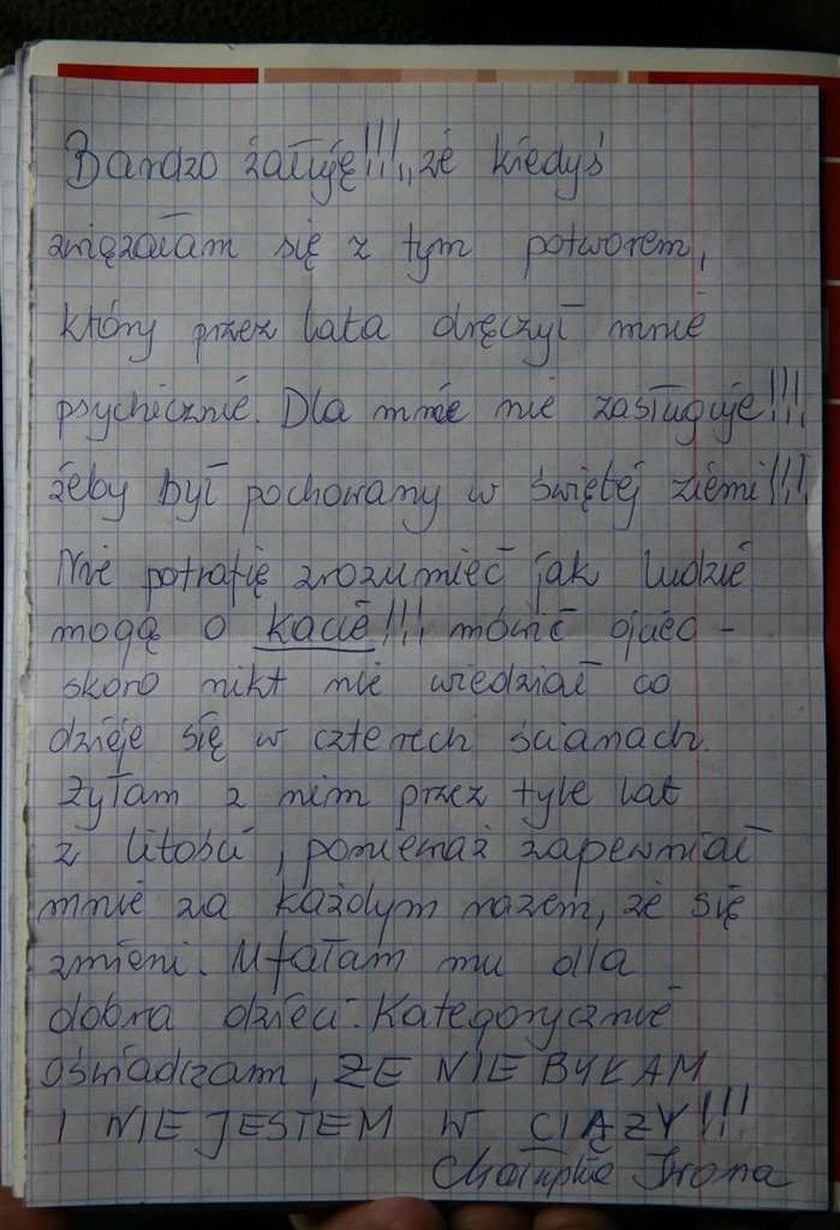 Bardzo żałuję!!!, że kiedyś
związałam się z tym potworem,
który przez lata dręczył mnie
psychicznie. Dla mnie nie zasługuje!!!
żeby był pochowany w świętej ziemi!!!
Nie potrafię zrozumieć jak ludzie
mogą o kacie!!! mówić ojciec -
skoro nikt nie wiedział co
dzieje się w czterech ścianach.
Żyłam z nim przez tyle lat
z litości, ponieważ zapewniał
mnie za każdym razem, że się
zmieni. Ufałam mu dla
dobra dzieci. Kategorycznie
oświadczam, ŻE NIE BYŁAM
I NIE JESTEM W CIĄŻY!!!
Chałupka Irona